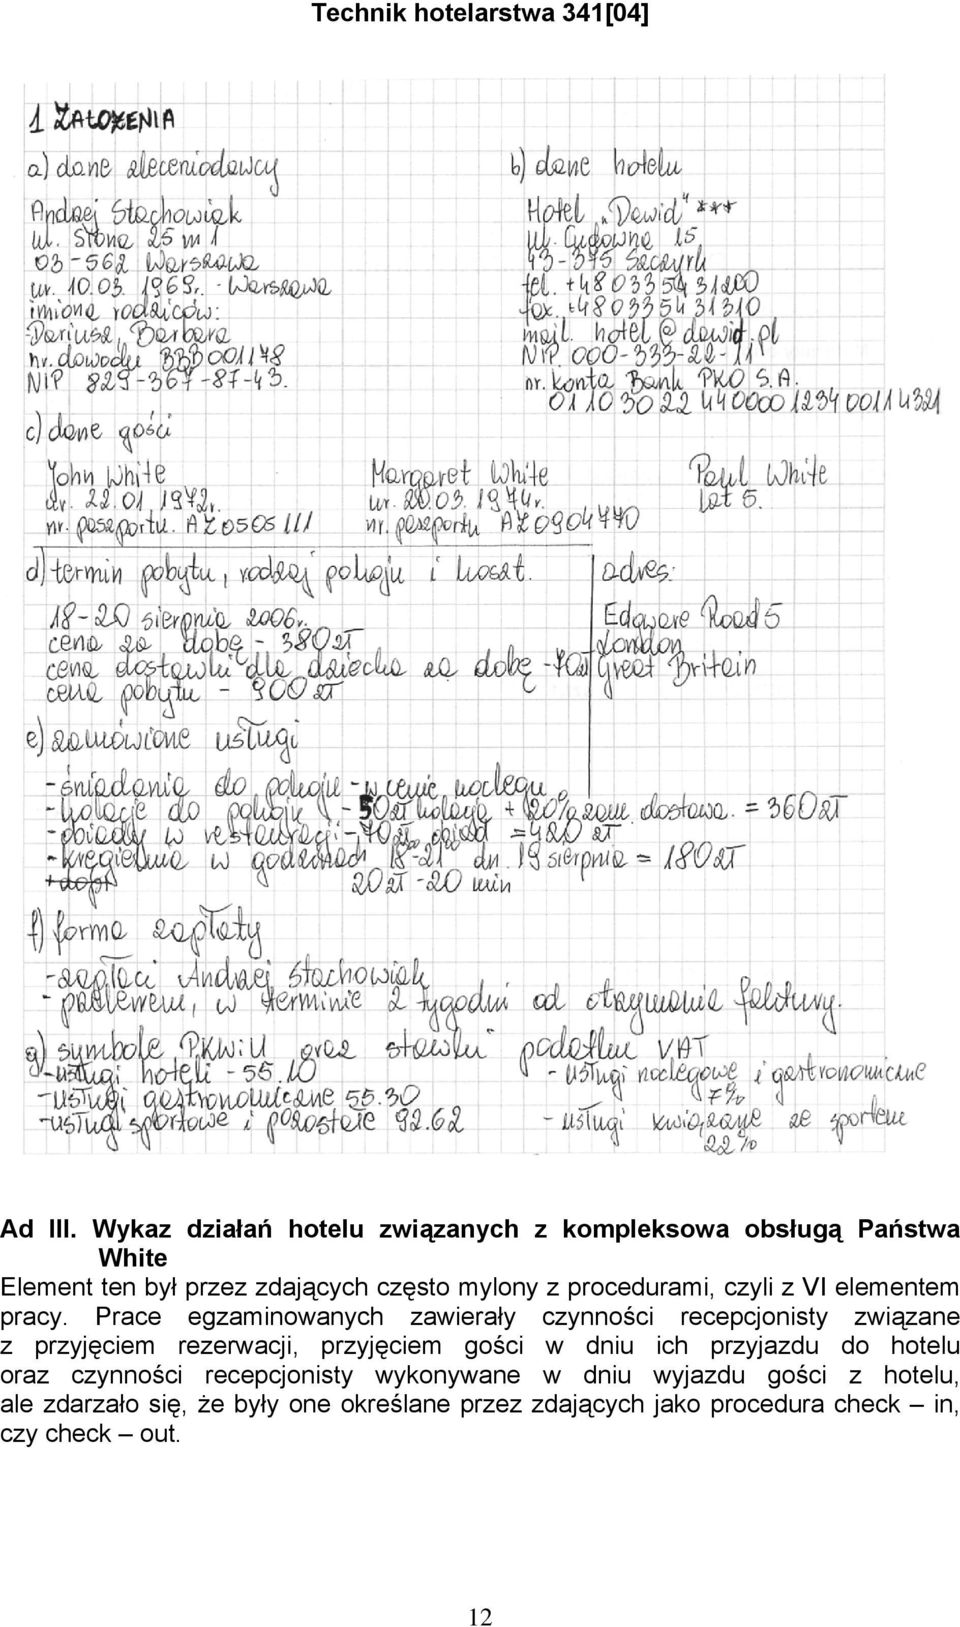 Technik hotelarstwa 341[04]
1 ZAŁOŻENIA
a) dane zleceniodawcy
Andrzej Stachowiak
ul. Słona 25 m 1
03-562 Warszawa
ur. 10.03. 1969r. - Warszawa
imiona rodziców:
Dariusz, Barbara
nr. dowodu BBB001178
NIP 829-367-87-43.
b) dane hotelu
Hotel „Dawid" ***
ul. Cudowna 15
43-375 Szczyrk
tel. +48 033 54 31200
fax. +48 033 54 31310
mail. hotel@dawid.pl
NIP 000-333-22-11
nr. konta Bank PKO S.A.
01 10 30 22 44 0000 1234 0011 4321
c) dane gości
John White
ur. 22.01.1972r.
nr. paszportu. AZ0505111
Margaret White
ur. 20.03.1974r.
nr. paszportu AZ0904770
Paul White
lat 5.
d) termin pobytu, rodzaj pokoju i koszt.
18-20 sierpnia 2006r.
cena za dobę - 380zł
cena dostawki dla dziecka za dobę - 70zł
cena pobytu - 900zł
adres:
Edgware Road 5
London
Great Britain
e) zamówione usługi
- śniadania do pokoju - w cenie noclegu
- kolacje do pokoju - 50zł kolacja + 20% zam. dostawa. = 360zł
- obiady w restauracji - 70zł obiad = 420 zł
- kręgielnia w godzinach 18⁰⁰-21⁰⁰ dn. 19 sierpnia = 180zł
20zł - 20 min
f) forma zapłaty
- zapłaci Andrzej Stachowiak
- przelewem, w terminie 2 tygodni od otrzymania faktury.
g) symbole PKWiU oraz stawki podatku VAT
- usługi hoteli - 55.10
- usługi gastronomiczne 55.30
- usługi sportowe i pozostałe 92.62
- usługi noclegowe i gastronomiczne
7%
- usługi związane ze sportem
22%
Ad III. Wykaz działań hotelu związanych z kompleksowa obsługą Państwa
White
Element ten był przez zdających często mylony z procedurami, czyli z VI elementem
pracy. Prace egzaminowanych zawierały czynności recepcjonisty związane
z przyjęciem rezerwacji, przyjęciem gości w dniu ich przyjazdu do hotelu
oraz czynności recepcjonisty wykonywane w dniu wyjazdu gości z hotelu,
ale zdarzało się, że były one określane przez zdających jako procedura check – in,
czy check – out.
12